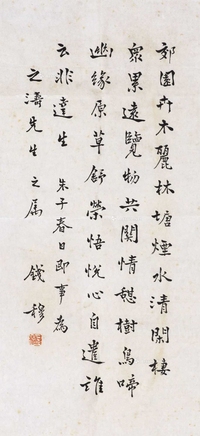 郊園卉木麗林塘煙水清閑棲
衆累遠覽物共關情憇樹鳥啼
幽緣原草舒榮悟悅心自遣誰
云非達生 朱子春日即事為
之濤先生之屬 錢穆